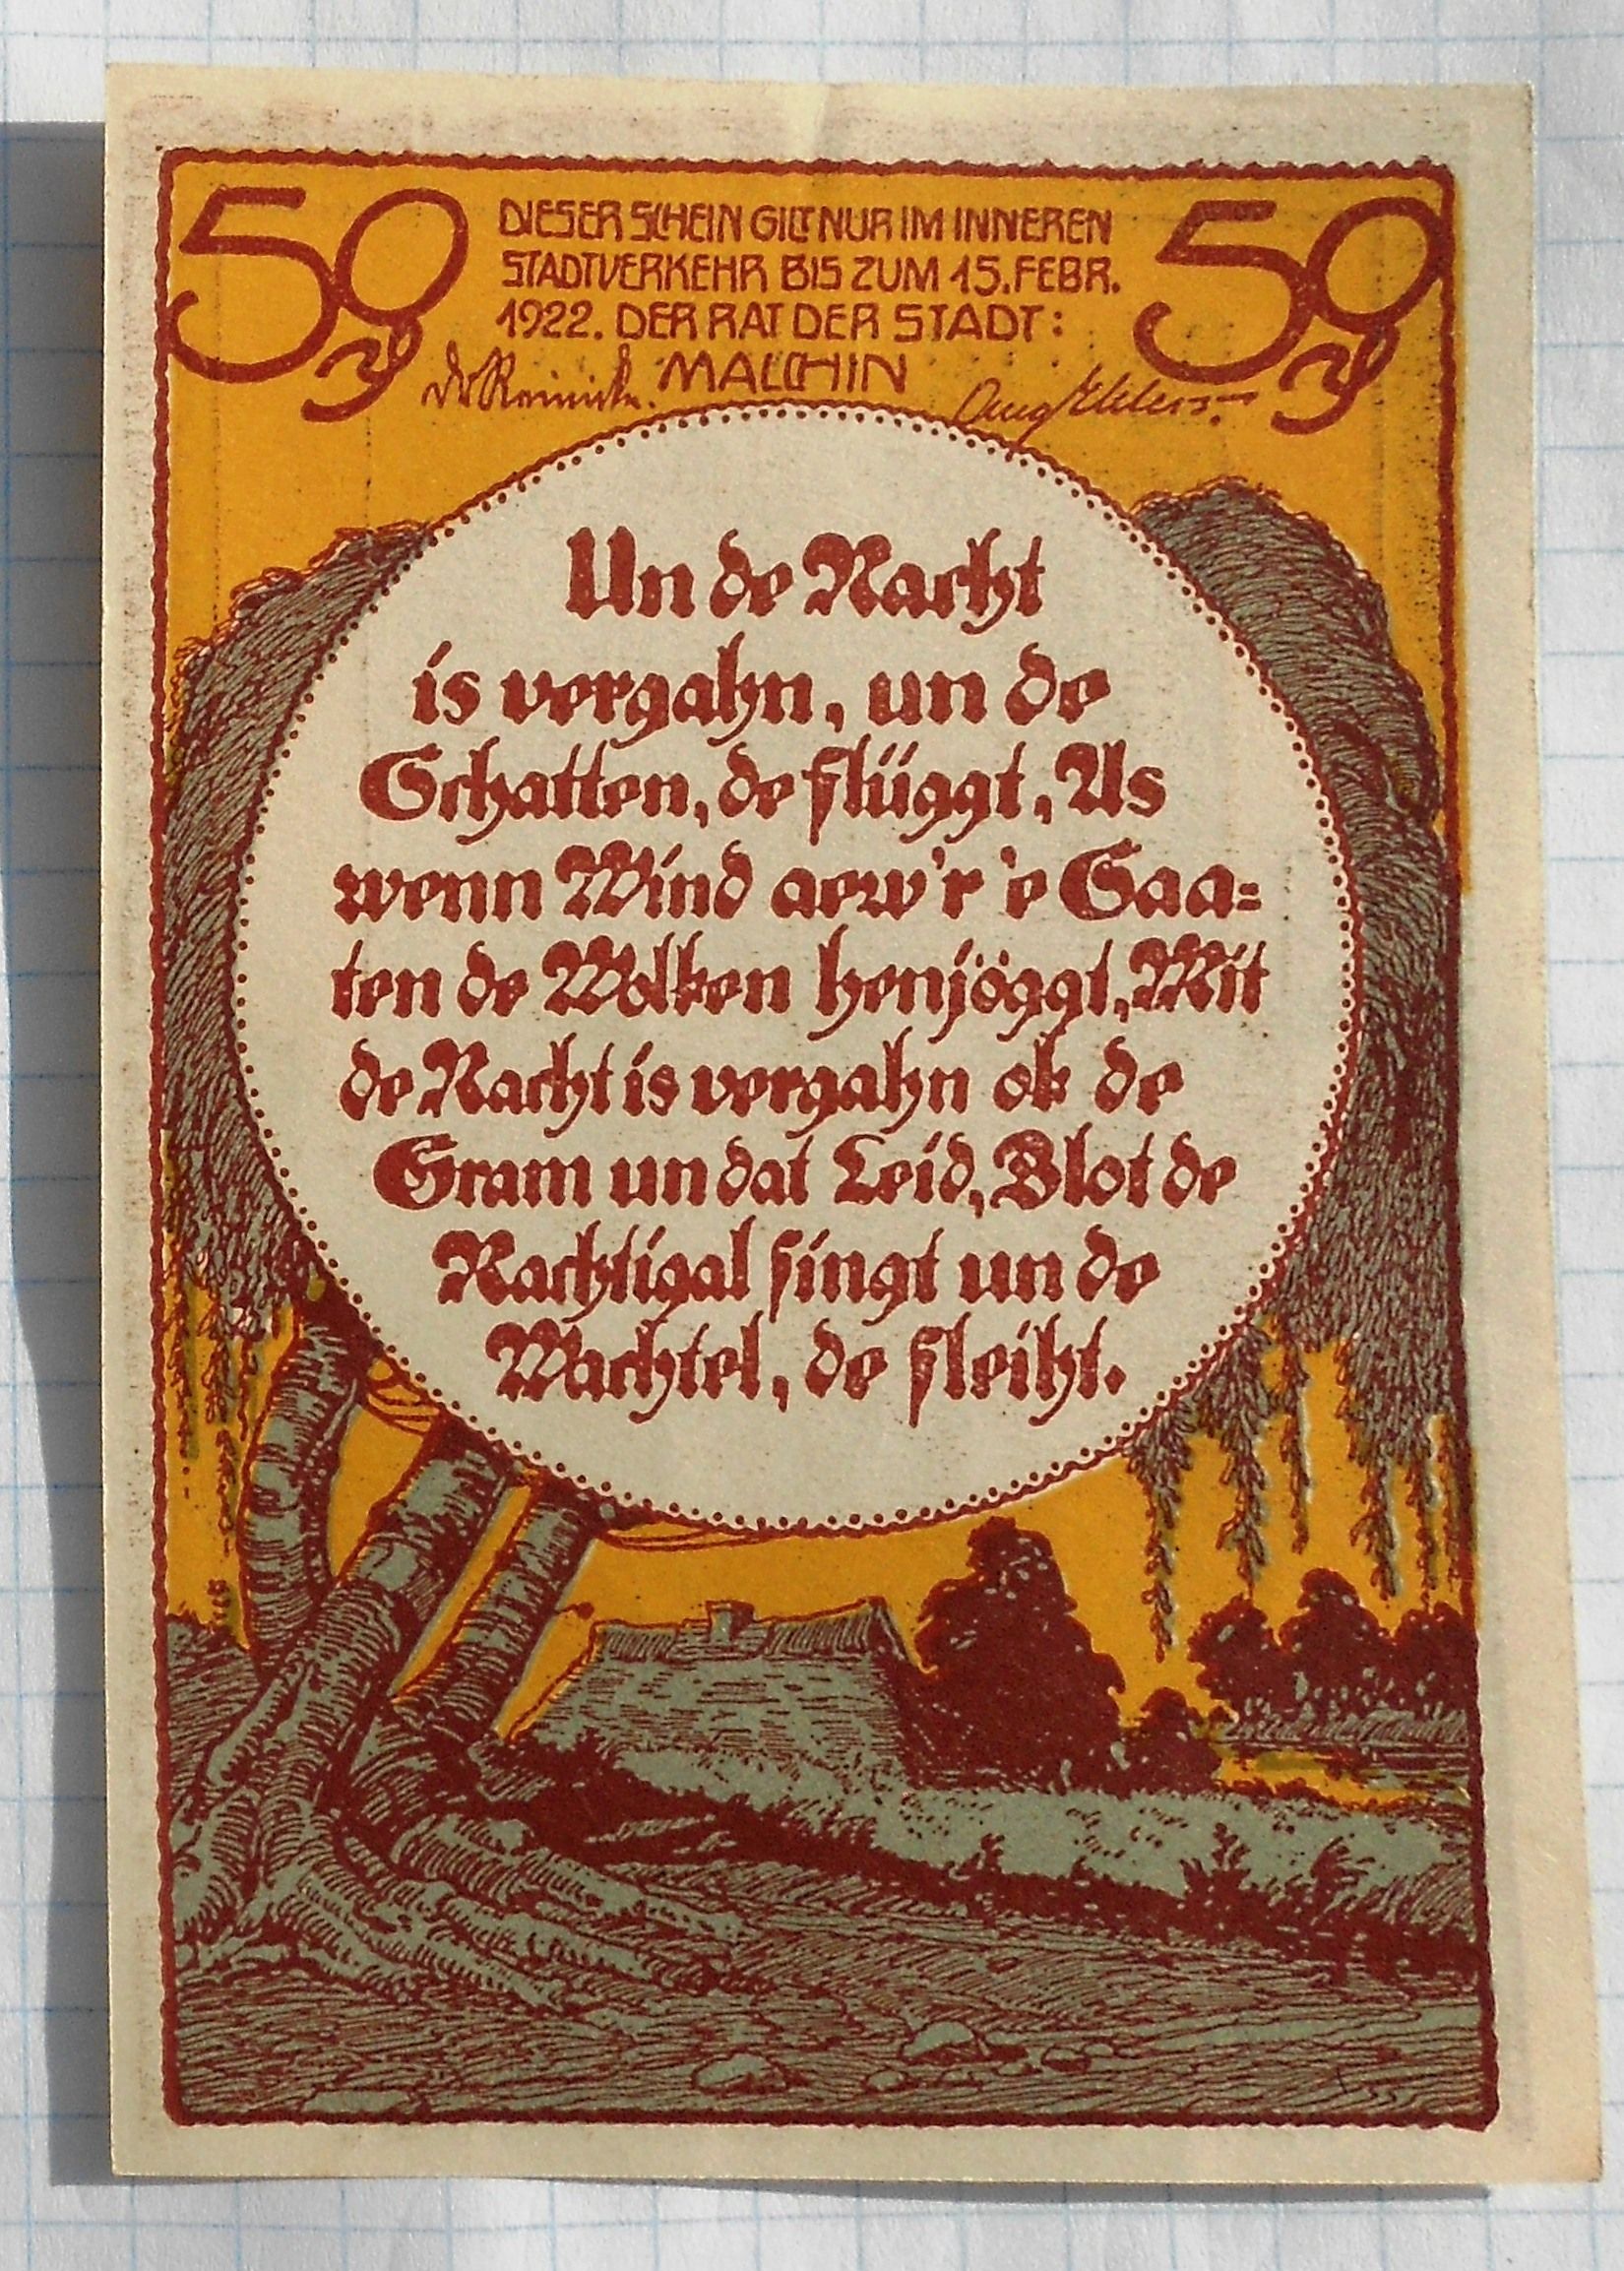 50 DIESER SCHEIN GILT NUR IM INNEREN 50
STADTVERKEHR BIS ZUM 15. FEBR.
1922. DER RAT DER STADT:
MALCHIN
Un de Nacht
is vergahn, un de
Schatten, de flüggt, As
wenn Wind aew'r 'e Saa=
ten de Wolken henjöggt, Mit
de Nacht is vergahn ok de
Gram un dat Leid, Blot de
Nachtigal singt un de
Wachtel, de fleiht.